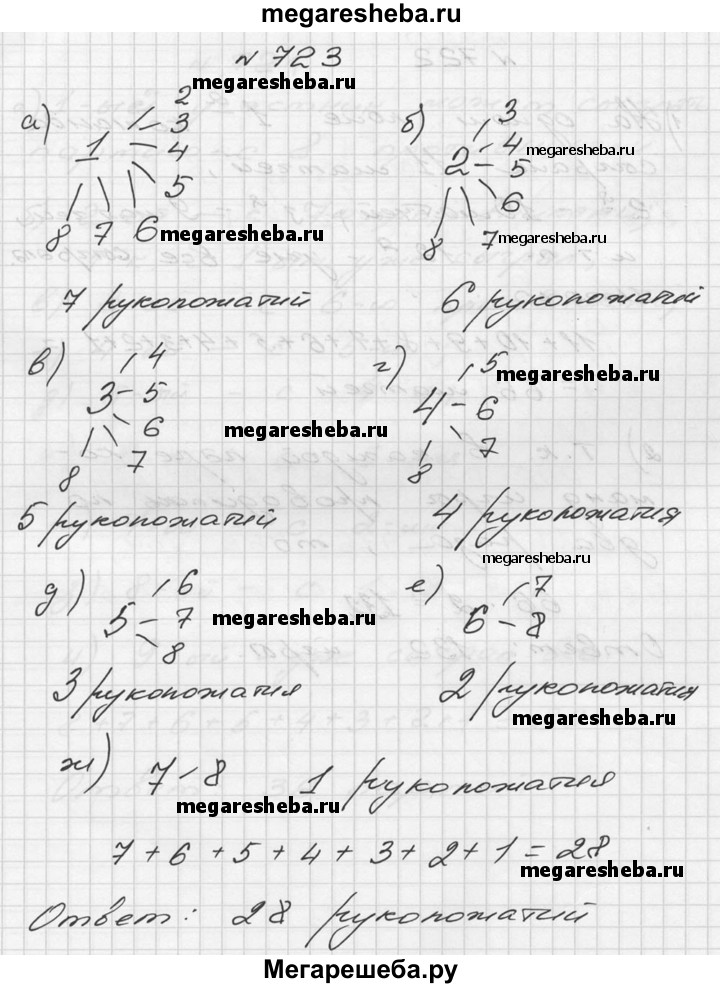 megaresheba.ru
№ 723
megaresheba.ru
а) 1 – 2 3 4 5 6 7 8
megaresheba.ru
б) 2 – 3 4 5 6 7 8
megaresheba.ru
megaresheba.ru
7 рукопожатий
6 рукопожатий
в) 3 – 4 5 6 7 8
megaresheba.ru
г) 4 – 5 6 7 8
megaresheba.ru
5 рукопожатий
4 рукопожатия
megaresheba.ru
д) 5 – 6 7 8
megaresheba.ru
е) 6 – 7 8
3 рукопожатия
2 рукопожатия
megaresheba.ru
ж) 7 – 8 1 рукопожатия
megaresheba.ru
7 + 6 + 5 + 4 + 3 + 2 + 1 = 28
megaresheba.ru
Ответ: 28 рукопожатий
Мегарешеба.ру